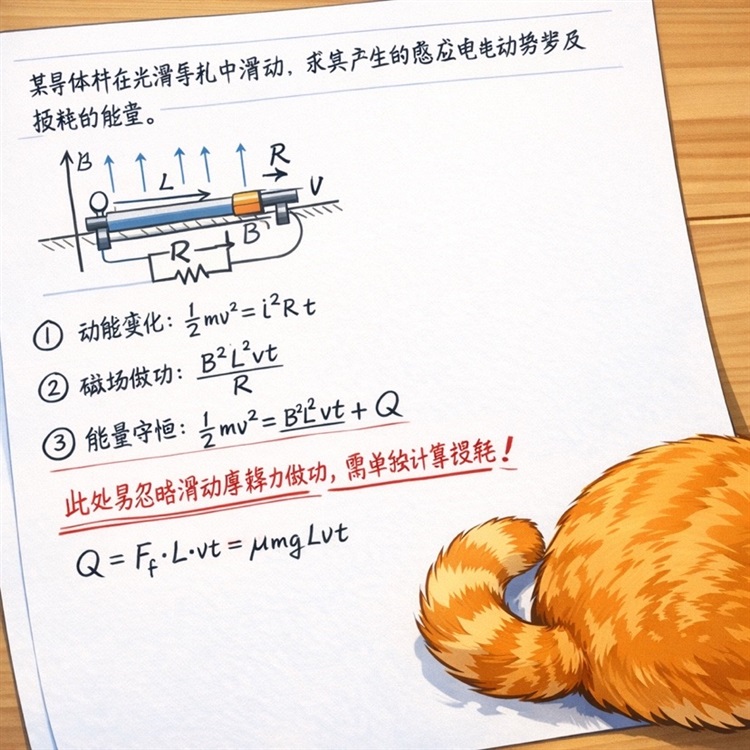 某导体杆在光滑导轨中滑动，求其产生的感应电动势及
损耗的能量。
B
L
R
V
R
B
① 动能变化：½mv²=i²Rt
② 磁场做功：B²L²vt/R
③ 能量守恒：½mv²=B²L²vt+Q
此处易忽略滑动摩擦力做功，需单独计算损耗！
Q=F_f·L·vt=μmgLvt